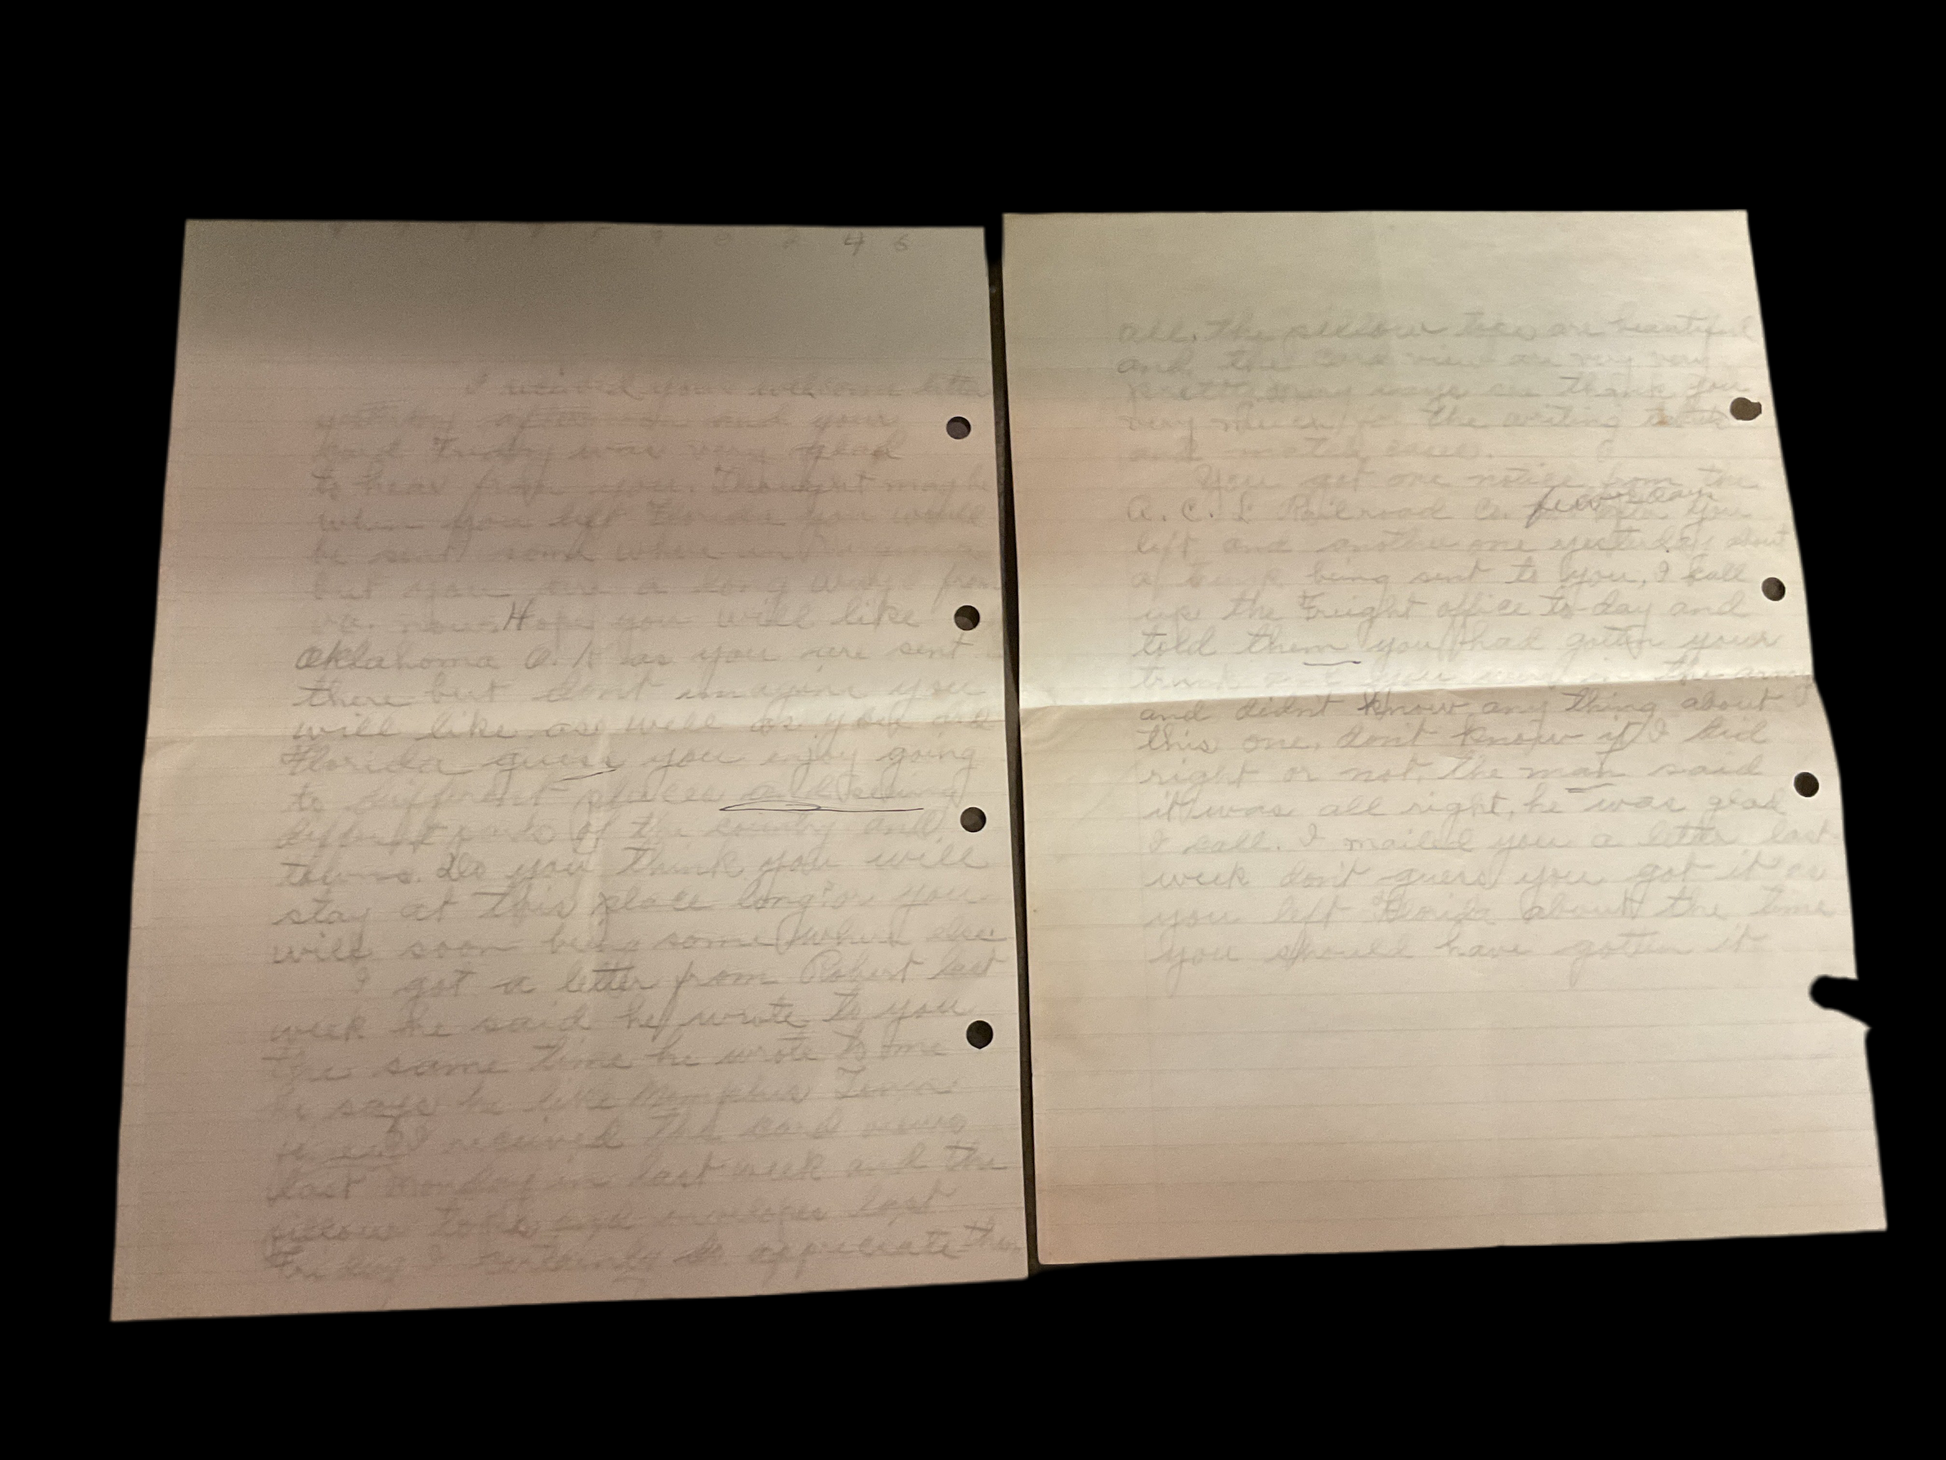 4 6
I received your welcome letter
yesterday afternoon and your
card Friday was very glad
to hear from you. Thought maybe
when you left Florida you would
be sent some where in
but you are a long ways from
va. now. Hope you will like
Oklahoma O.K as you are sent
there but dont imagine you
will like as well as you did
Florida guess you enjoy going
to different places and seeing
different parts of the country and
towns. Do you think you will
stay at this place long or you
will soon being some where else
I got a letter from Robert last
week he said he wrote to you
the same time he wrote to me
he says he like Memphis Tenn.
received the card views
last Monday in last week and the
pillow tops and envelopes last
Friday I certainly do appreciate them
all, the pillow tops are beautiful
and the card views are very very
pretty, many ways thank you
very much for the writing
and match case.
You got one notice from the
A. C. L Railroad Co. few days you
left and another one yesterday about
a trunk being sent to you, I call
up the Freight office to-day and
told them you had gotten your
trunk you in the army
and didnt know any thing about
this one, dont know if I did
right or not. the man said
it was all right, he was glad
I call. I mailed you a letter last
week don't guess you got it as
you left Florida about the time
you should have gotten it